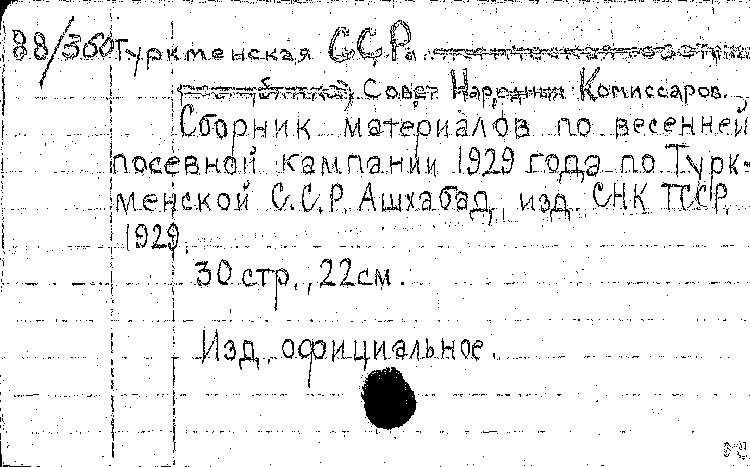 88/360 Туркменская С.С.Р.
Совет Народных Комиссаров.
Сборник материалов по весенней
посевной кампании 1929 года по Турк-
менской С.С.Р. Ашхабад, изд. СНК ТССР,
1929.
30 стр., 22 см.
Изд. официальное.